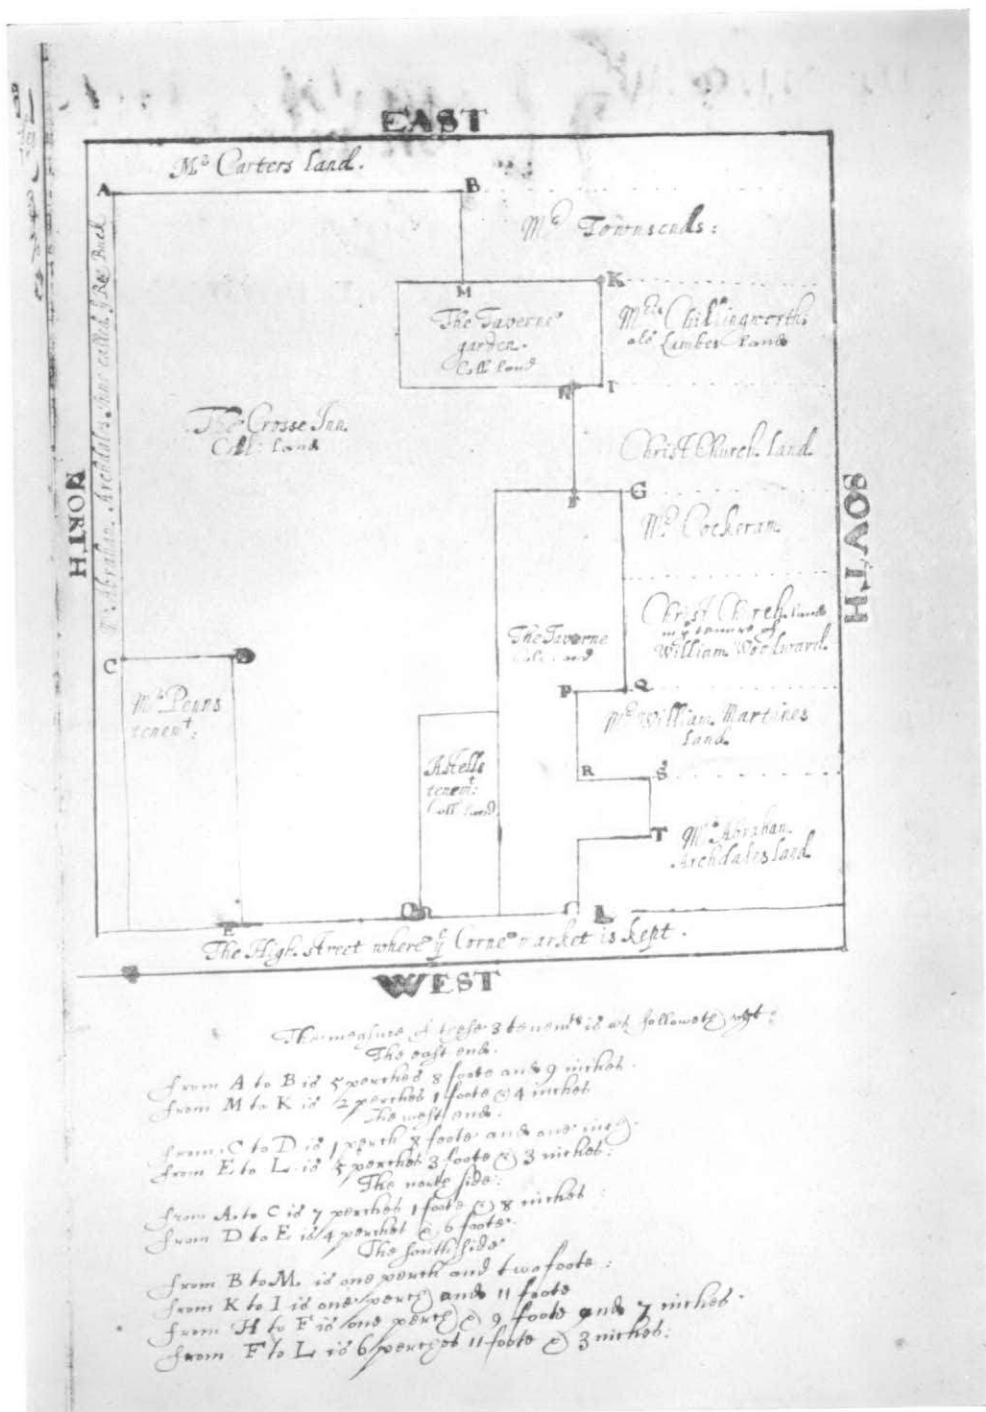 EAST
Mr Carters land.
A
B
Mr Townsends:
M
K
The Taverne
garden.
Coll: land
Mrs Chillingworth
als Lambes land
N
I
The Crosse Inn.
Coll: land
Christ Church. land.
F
G
Mr Cockeram
NORTH
SOVTH
Mr Abrahan. Archdales. Inne called ye Roe Buck
The Taverne
Coll: land
Christ Church. land
in ye tenure of
William Woodward.
C
D
Mrs Penns
tenemt:
P
Q
Mr William. Martines
land.
R
S
Astells
tenemt:
Coll: land
T
Mr Abrahan.
Archdales land
E
L
The High. street where ye Corne market is kept.
WEST
The measure of these 3 tenemts is as followeth vizt:
The east end.
from A to B is 5 perches 8 foote and 9 inches.
from M to K is 2 perches 1 foote & 4 inches
The west end.
from C to D is 1 perch 8 foote and one inch.
from E to L is 5 perches 3 foote & 3 inches:
The north side:
from A to C is 7 perches 1 foote & 8 inches:
from D to E is 4 perches & 6 foote.
The south side
from B to M. is one perch and two foote:
from K to I is one perch and 11 foote
from H to F is one perch & 9 foote and 7 inches.
from F to L is 6 perches 11 foote & 3 inches: